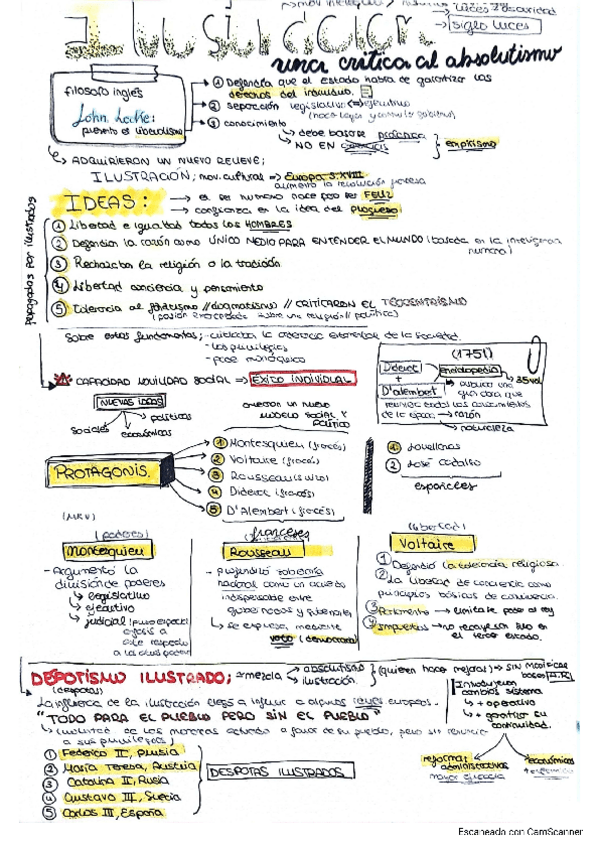 Ilustración
→ luces ≠ oscuridad
→ siglo luces
una crítica al absolutismo
filosofo inglés
John Locke:
① Defendía que el estado había de garantizar los
derechos del individuo.
② separación legislativo ejecutivo
③ conocimiento
↳ debe basarse
NO EN
empirismo
↳ ADQUIRIERON UN NUEVO RELIEVE;
ILUSTRACIÓN; mov. cultural ⇒ Europa S. XVIII
IDEAS:
→ el ser humano nace por ser FELIZ
→ confianza en la idea del progreso
Propagadas por ilustrados
① Libertad e igualdad todos los HOMBRES
② Defendían la razón como ÚNICO MEDIO PARA ENTENDER EL MUNDO (basada en la inteligencia
humana)
③ Rechazaban la religión o la tradición
④ Libertad conciencia y pensamiento
⑤ Tolerancia al fanatismo // dogmatismo // CRITICARON EL TEOCENTRISMO
(pasión exacerbada sobre una religión // política)
Sobre estos fundamentos;
- los privilegios
- poder monárquico
CAPACIDAD MOVILIDAD SOCIAL ⇒ ÉXITO INDIVIDUAL
(1751)
Diderot
+
D'alembert
enciclopedia
→ 35 vol
de la época → razón
→ naturaleza
NUEVAS IDEAS
sociales
económicas
políticas
querían un nuevo
modelo social y
político
PROTAGONIS.
① Montesquieu (francés)
② Voltaire (francés)
③ Rousseau (suizo)
④ Diderot (francés)
⑤ D'Alembert (francés)
① Jovellanos
② José Cadalso
españoles
(poderes)
Montesquieu
- Argumentó la
división de poderes
↳ legislativo
↳ ejecutivo
↳ judicial
franceses
Rousseau
- profundizó soberanía
nacional como un acuerdo
indispensable entre
gobernados y gobernantes
↳ se expresa mediante
voto (democracia)
(libertad)
Voltaire
① Defendió la tolerancia religiosa.
② La libertad de conciencia como
principios básicos de convivencia.
③ Parlamento → limitase poder al rey
④ Impuestos → no recayesen solo en
el tercer estado.
DESPOTISMO ILUSTRADO;
(déspotas)
⇒ mezcla
→ absolutismo
→ ilustración.
(quieren hacer mejoras) → SIN MODIFICAR
bases A.R.
La influencia de la ilustración llegó a influir a algunos reyes europeos.
"TODO PARA EL PUEBLO PERO SIN EL PUEBLO"
↳ (voluntad de los monarcas actuado a favor de su pueblo, pero sin renunciar
a sus privilegios)
Introdujeron
cambios sistema
↳ + operativo
↳ + garantizar su
continuidad.
reformas
administrativas
mayor eficacia
económicas
① Federico II, Prusia
② María Teresa, Austria
③ Catalina II, Rusia
④ Gustavo III, Suecia
⑤ Carlos III, España
DÉSPOTAS ILUSTRADOS
Escaneado con CamScanner